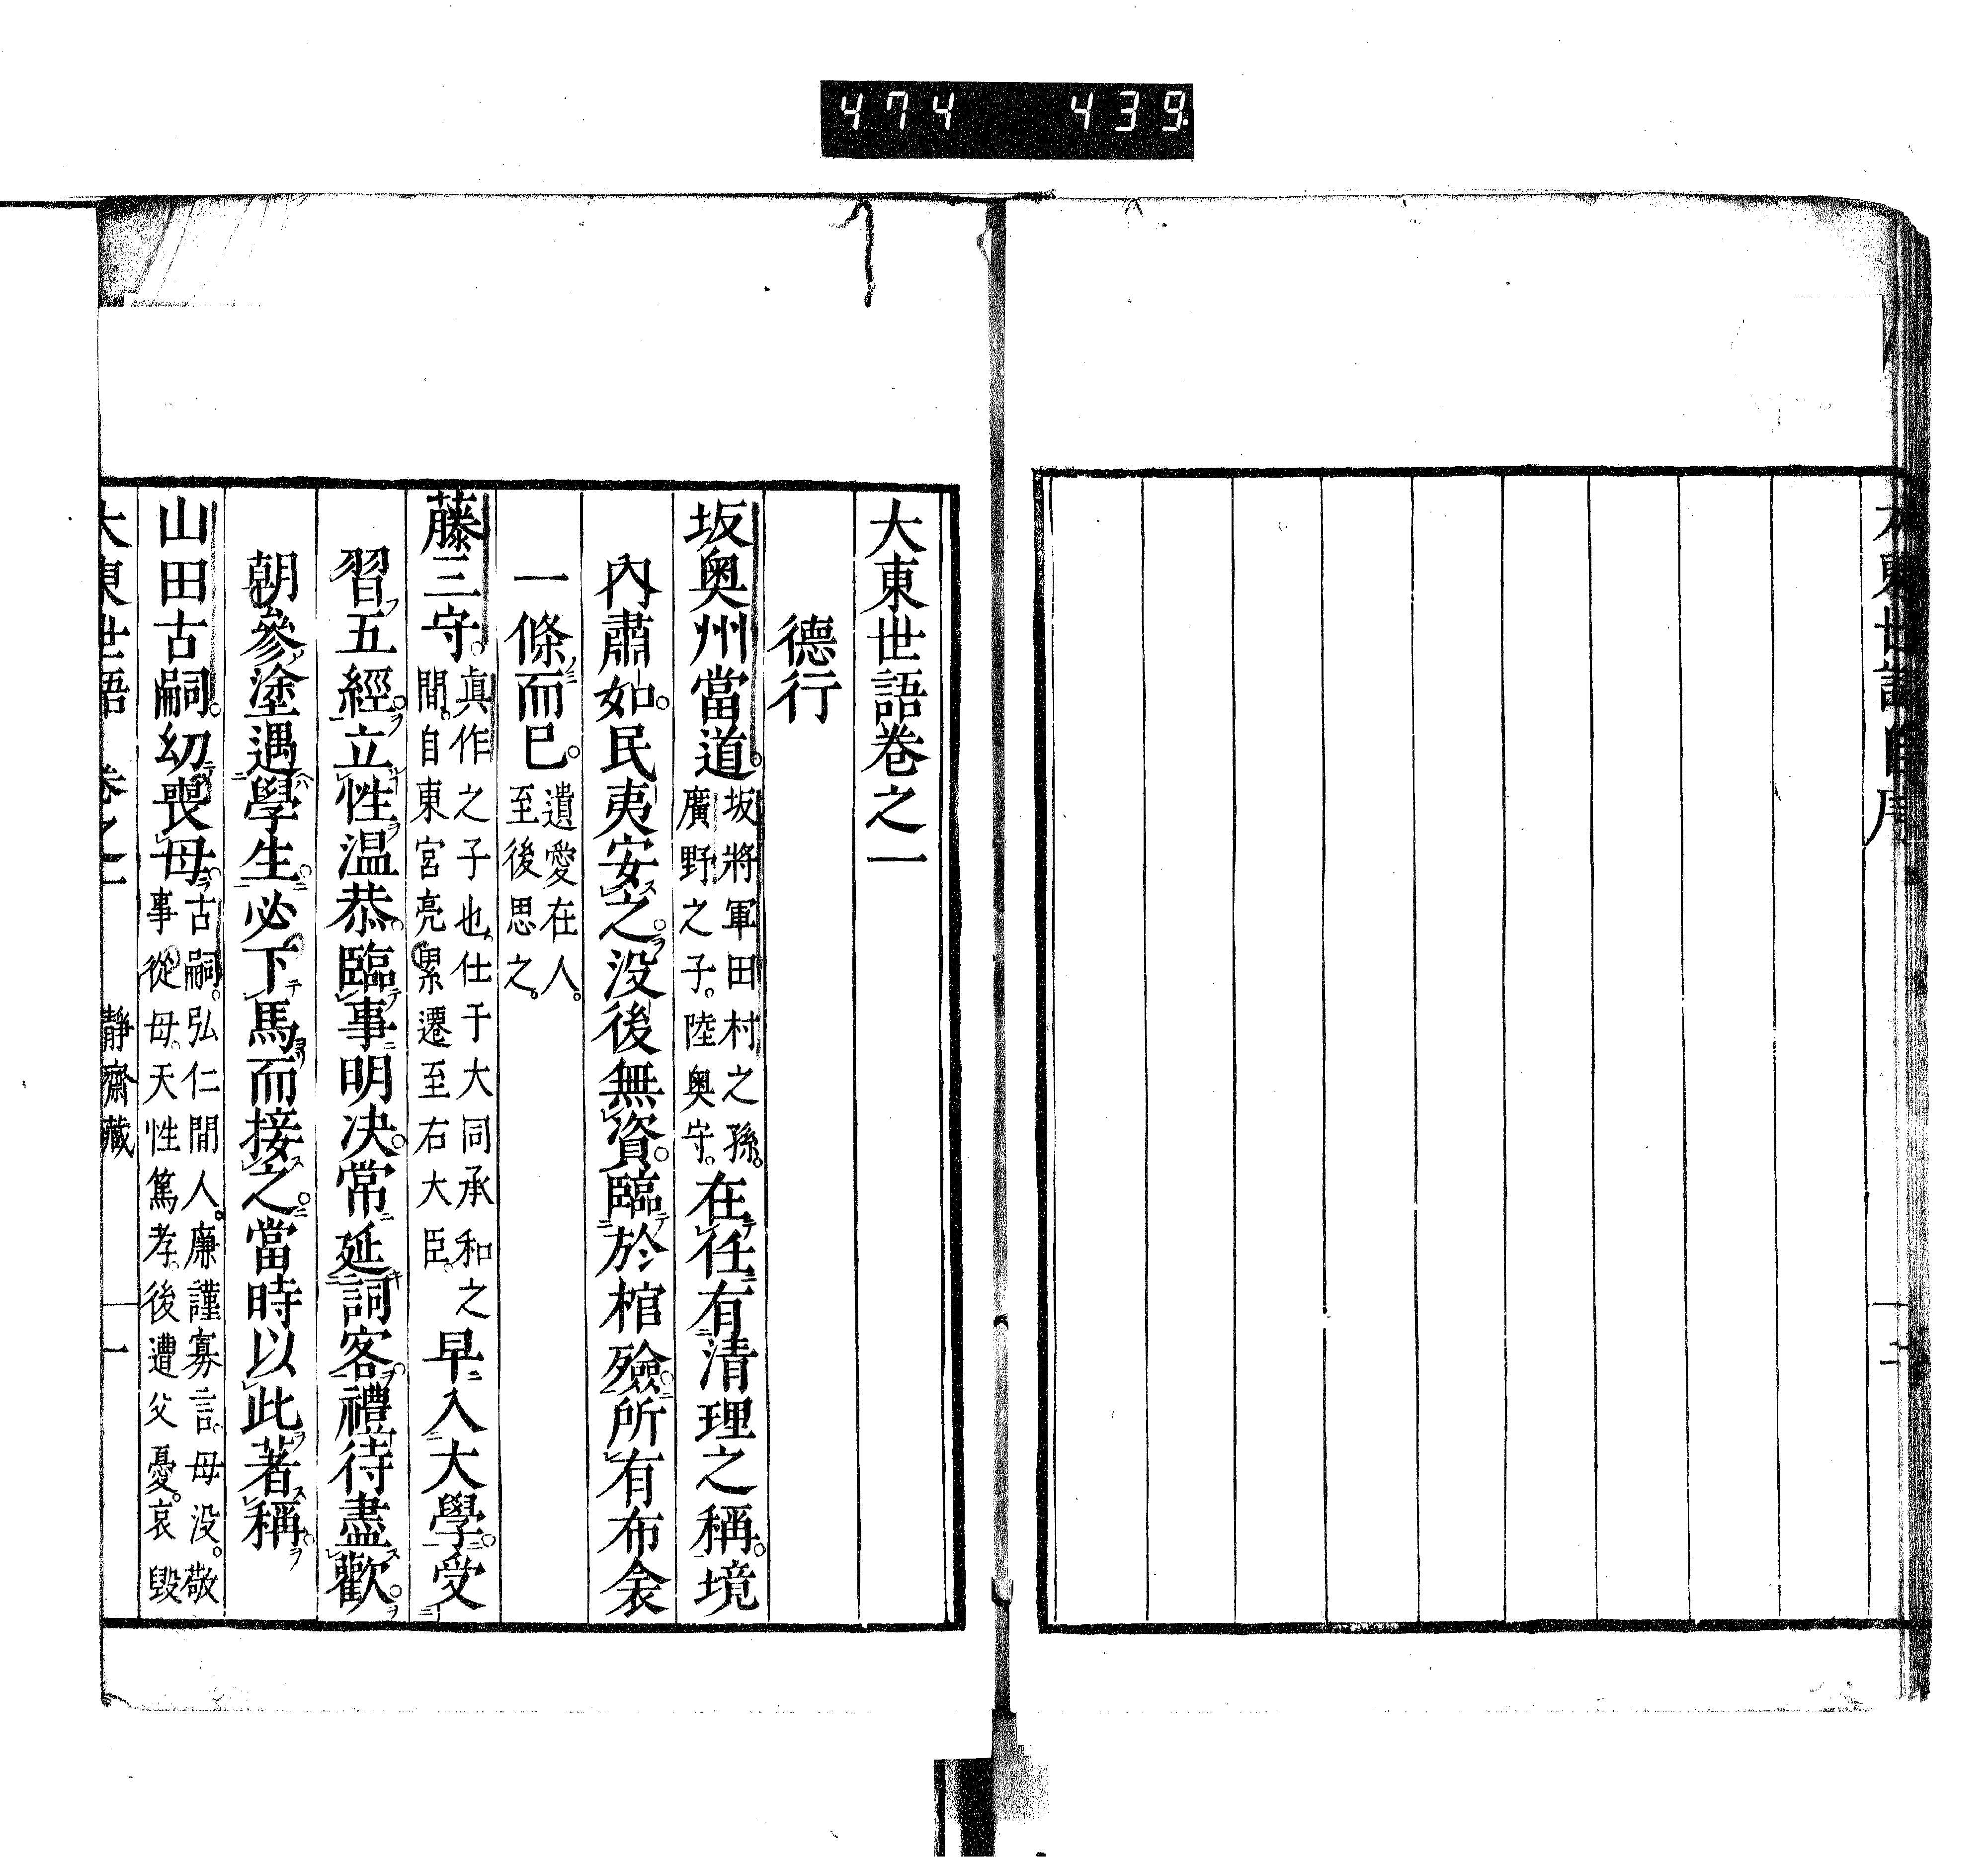 474 439
大東世語卷之一
德行
坂奥州當道。坂將軍田村之孫。廣野之子。陸奥守。在任有清理之稱。境
內肅如。民夷安之。没後無資。臨於棺殮。所有布衾
一條而已。遺愛在人。至後思之。
藤三守。眞作之子也。仕于大同承和之間。自東宮亮累遷至右大臣。早入大學。受
習五經。立性温恭。臨事明决。常延詞客。禮待盡歡。
朝參塗遇學生。必下馬而接之。當時以此著稱
山田古嗣。幻喪母。古嗣。弘仁間人。廉謹寡言。母没。敬事從母。天性篤孝。後遭父憂。哀毀
大東世語 卷之一 靜齋藏 一